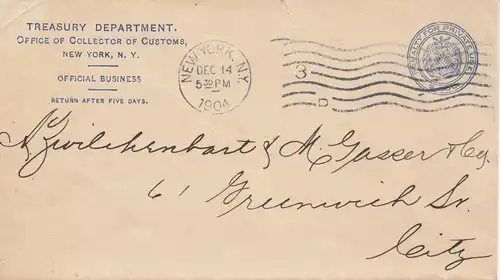 TREASURY DEPARTMENT.
OFFICE OF COLLECTOR OF CUSTOMS,
NEW YORK, N. Y.
OFFICIAL BUSINESS
RETURN AFTER FIVE DAYS.
NEW YORK, N.Y.
DEC 14
5 30 PM
1904
3
D
PENALTY FOR PRIVATE USE
A Zwilchenbart & M. Gasser & Co.
61 Greenwich St.
City